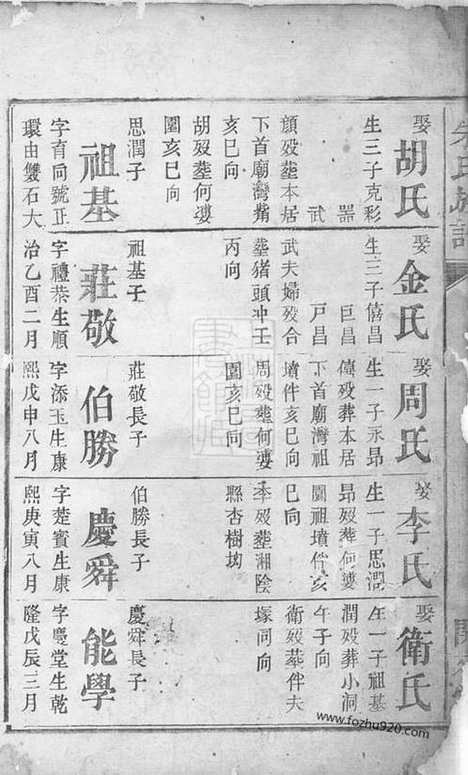 娶胡氏
生三子克彩
器
武
顏殁塟本居
下首廟灣觜
亥巳向
胡殁塟何婆
園亥巳向
思潤子
祖基
字育同號正
環由雙石大
娶金氏
生三子僖昌
巨昌
戸昌
武夫婦殁合
塟猪頭冲壬
丙向
祖基子
莊敬
字禮恭生順
治乙酉二月
娶周氏
生一子永昻
僖殁葬本居
下首廟灣祖
墳伴亥巳向
周殁葬何婆
園亥巳向
莊敬長子
伯勝
字添玉生康
熙戊申八月
娶李氏
生一子思潤
昻殁葬何婆
園祖墳伴亥
巳向
李殁塟湘陰
縣杏樹坳
伯勝長子
慶舜
字楚賓生康
熙庚寅八月
娶衛氏
生一子祖基
潤殁葬小洞
午子向
衛殁塟伴夫
塚同向
慶舜長子
能學
字慶堂生乾
隆戊辰三月
www.fozhu920.com